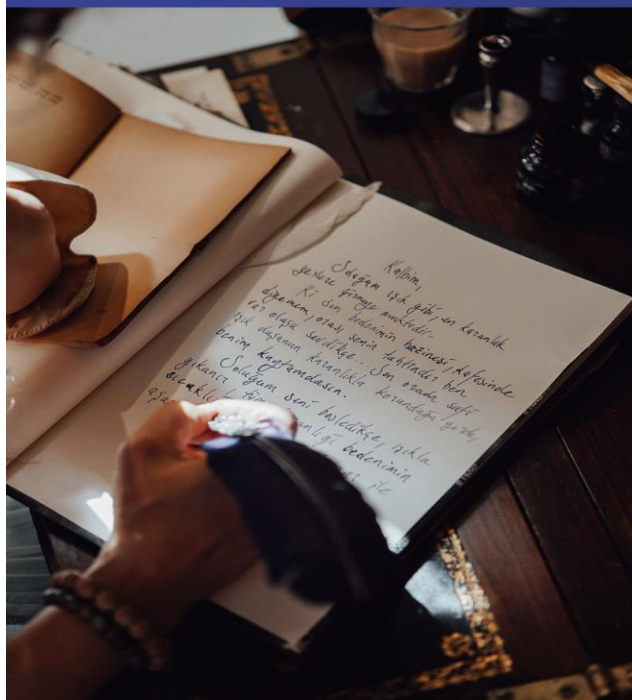 Kalbim,
Soluğum ışık gibi, en karanlık
yerlere girmeye muktedir.
Ki sen bedenimin hazinesi, kafesinde
diyemem, orası senin tahtındır ben
var oluşa sevdikçe.. Sen orada safi
ışık dışının karanlıkla korunduğu yerde,
benim kuytumdasın.
Soluğum seni besledikçe, ışıkla
yıkanır
sıcaklı
bedenimin
ile